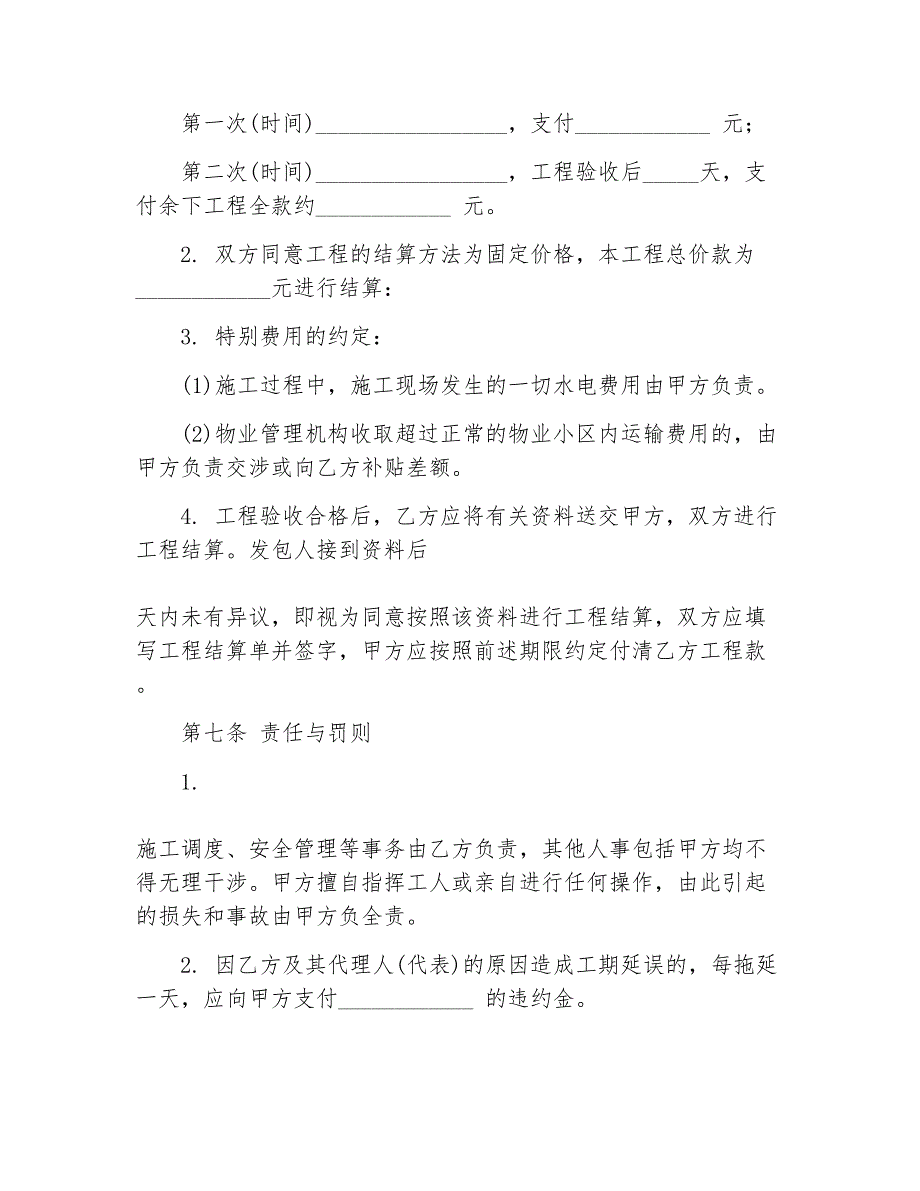 第一次(时间)_________________，支付____________ 元；
第二次(时间)_________________，工程验收后_____天，支
付余下工程全款约____________ 元。
2. 双方同意工程的结算方法为固定价格，本工程总价款为
____________元进行结算：
3. 特别费用的约定：
(1)施工过程中，施工现场发生的一切水电费用由甲方负责。
(2)物业管理机构收取超过正常的物业小区内运输费用的，由
甲方负责交涉或向乙方补贴差额。
4. 工程验收合格后，乙方应将有关资料送交甲方，双方进行
工程结算。发包人接到资料后
天内未有异议，即视为同意按照该资料进行工程结算，双方应填
写工程结算单并签字，甲方应按照前述期限约定付清乙方工程款
。
第七条 责任与罚则
1.
施工调度、安全管理等事务由乙方负责，其他人事包括甲方均不
得无理干涉。甲方擅自指挥工人或亲自进行任何操作，由此引起
的损失和事故由甲方负全责。
2. 因乙方及其代理人(代表)的原因造成工期延误的，每拖延
一天，应向甲方支付____________ 的违约金。